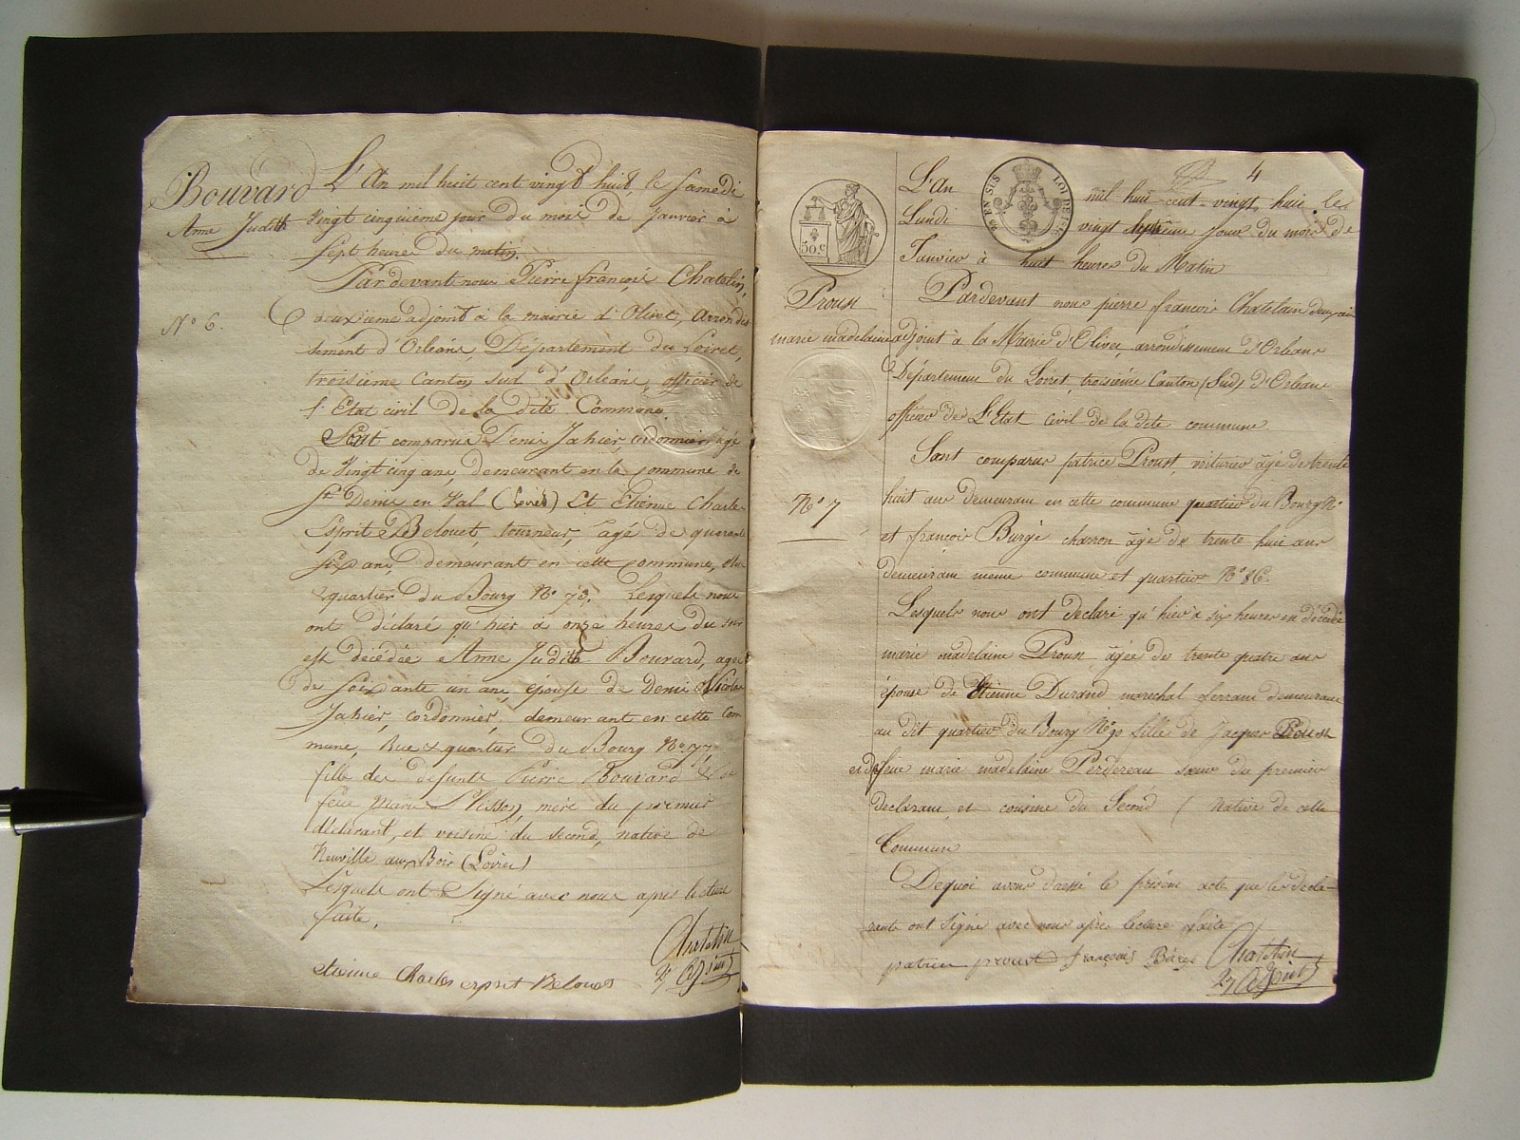 Bouvard
Anne Judith
N° 6.
L'An mil huit cent vingt huit, le samedi
vingt cinquieme jour du mois de Janvier à
sept heures du matin.
Par devant nous Pierre françois Chatelin,
deuxieme adjoint à la mairie d'Olivet, arrondis
sement d'Orléans, Département du Loiret,
troisième Canton sud d'Orléans, officier de
l'Etat civil de la dite Commune.
Sont comparus Denis Jahier, cordonnier, agé
de vingt cinq ans, demeurant en la commune de
St Denis en Val (Loiret) Et Etienne Charles
Esprit Belouet, tourneur, agé de quarante
six ans, demeurant en cette commune,
quartier du Bourg N° 73. Lesquels nous
ont déclaré qu'hier à onze heures du soir
est décédée Anne Judith Bouvard, agée
de soixante un ans, épouse de Denis Nicolas
Jahier, cordonnier, demeurant en cette com
mune, Rue & quartier du Bourg N° 77,
fille des défunts Pierre Bouvard & de
feue Marie Plisson, mère du premier
déclarant, et voisine du second, native de
Neuville aux Bois (Loiret)
Lesquels ont Signé avec nous apres lecture
faite.
etienne Charles esprit Belouet
Chatelin
2e Adjoint
4
50 c
EN SUS
LOI DE
Proust
marie madelaine
N° 7
L'An mil huit cent vingt huit le
Lundi vingt septième Jour du mois de
Janvier à huit heures du Matin
Pardevant nous pierre françois Chatelain deuxieme
adjoint à la Mairie d'Olivet, arrondissement d'Orleans
Département du Loiret, troisième Canton (Sud) d'Orleans
officier de L'Etat Civil de la dite commune
Sont comparus patrice Proust, voiturier âgé de trente
huit ans demeurant en cette commune quartier du Bourg N°
et françois Burgé charron âgé de trente huit ans
demeurant même commune et quartier N° 86.
Lesquels nous ont declaré qu'hier à six heures est décédée
marie madelaine Proust, âgée de trente quatre ans
épouse de Etienne Durand marechal ferrant demeurant
au dit quartier du Bourg N° 90 fille de Jacques Proust
et de feue marie madelaine Perdereau sœur du premier
declarant, et cousine du Second / Native de cette
Commune
De quoi avons dressé le present acte que les decla-
rants ont signé avec nous après lecture faite
patrice proust françois Burgé Chatelin
2e Adjoint